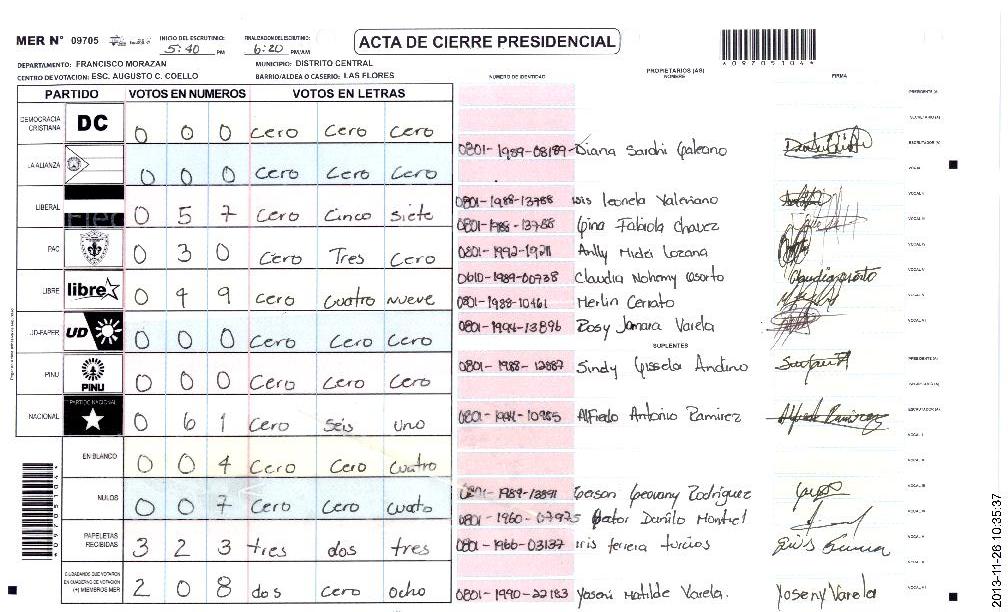 MER N° 09705
INICIO DEL ESCRUTINIO: 5:40 PM
FINALIZACION DEL ESCRUTINIO: 6:20 PM/AM
ACTA DE CIERRE PRESIDENCIAL
*0970510 4*
DEPARTAMENTO: FRANCISCO MORAZAN
MUNICIPIO: DISTRITO CENTRAL
CENTRO DE VOTACION: ESC. AUGUSTO C. COELLO
BARRIO/ALDEA O CASERIO: LAS FLORES
PARTIDO VOTOS EN NUMEROS VOTOS EN LETRAS
NUMERO DE IDENTIDAD PROPIETARIOS (AS) NOMBRE FIRMA
DEMOCRACIA CRISTIANA DC 0 0 0 cero cero cero
LA ALIANZA 0 0 0 cero cero cero
LIBERAL 0 5 7 cero cinco siete
PAC 0 3 0 cero Tres cero
LIBRE libre 0 4 9 cero cuatro nueve
UD-FAPER UD 0 0 0 cero cero cero
PINU PINU 0 0 0 cero cero cero
NACIONAL PARTIDO NACIONAL 0 6 1 cero seis uno
EN BLANCO 0 0 4 cero cero cuatro
NULOS 0 0 7 cero cero
PAPELETAS RECIBIDAS 3 2 3 tres dos tres
CIUDADANOS QUE VOTARON EN CUADERNO DE VOTACION (+) MIEMBROS MER 2 0 8 dos cero ocho
PRESIDENTE (A)
SECRETARIO (A)
0801-1989-08189 Diana Sarahi Galeano ESCRUTADOR (A)
VOCAL I
0801-1988-13788 Isis Leonela Valeriano VOCAL II
0801-1988-13788 Gina Fabiola Chavez VOCAL III
0801-1992-19211 Lozana VOCAL IV
0610-1989-00738 Claudia Nohemy Osorto VOCAL V
0801-1988-10461 Merlin Cerrato
0801-1994-13896 Rosy Jamara Varela VOCAL VI
SUPLENTES
0801-1988-12887 Sindy Gissela Andino PRESIDENTE (A)
SECRETARIO (A)
0801-1941-10985 Alfredo Antonio Ramirez Alfredo Ramirez ESCRUTADOR (A)
VOCAL I
VOCAL II
0801-1989-13891 Gerson Geovany Rodriguez VOCAL III
0801-1960-07975 Danilo Montiel VOCAL IV
0801-1966-03137 iris ferrera turcios VOCAL V
0801-1990-22183 Yoseni Matilde Varela. Yoseny Varela VOCAL VI
2013-11-26 10:35:37